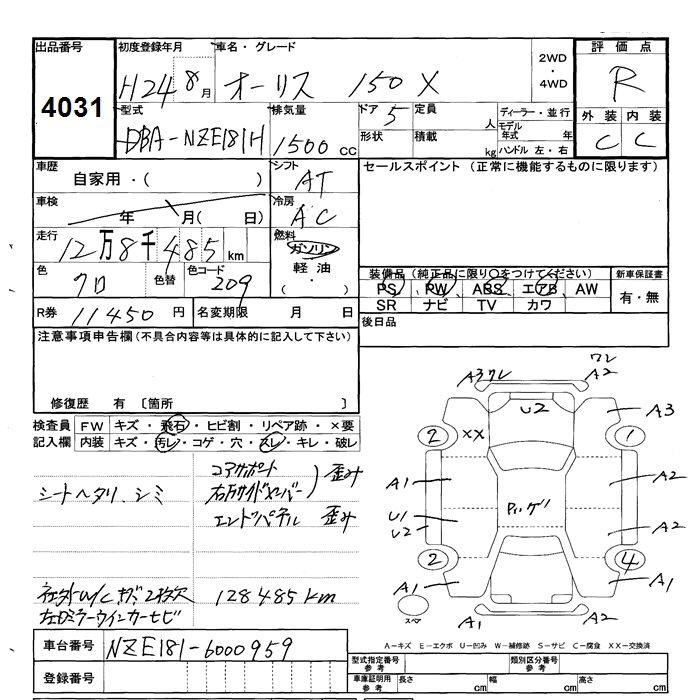 出品番号 初度登録年月 車名・グレード 評価点
4031 H24 8月 オーリス 150 X 2WD・4WD R
型式 排気量 ドア 定員 ディーラー・並行 外装 内装
DBA-NZE181H 1500cc 5 人 モデル年式 年 C C
形状 積載 kg ハンドル 左・右
車歴 シフト セールスポイント (正常に機能するものに限ります)
自家用・( ) AT
車検 年 月( 日) 冷房 AC
走行 12万8千485km 燃料 ガソリン
軽油
( ・ )
色 クロ 色替 色コード 209
装備品(純正品に限り○をつけてください) 新車保証書
PS PW ABS エアB AW 有・無
SR ナビ TV カワ
R券 11450円 名変期限 月 日 後日品
注意事項申告欄(不具合内容等は具体的に記入して下さい)
修復歴 有 〔箇所 〕
検査員 FW キズ・飛石・ヒビ割・リペア跡・×要
記入欄 内装 キズ・汚レ・コゲ・穴・スレ・キレ・破レ
コアサポート
右フロントサイドメンバー 歪み
シートヘタリ、シミ
エンドパネル 歪み
社外W/Cキズ、2枚欠 128485km
左ドアミラーウインカーサビ
A3 ワレ A2
U2
A3
2 XX 1
A1 A2
U1
U2 A2
2 4
A1 A1
スペア A1 A2
A-キズ E-エクボ U-凹み W-補修跡 S-サビ C-腐食 XX-交換済
車台番号 NZE181-6000959
登録番号
型式指定番号 参考 類別区分番号 参考
車庫証明用 参考 長さ cm 幅 cm 高さ cm